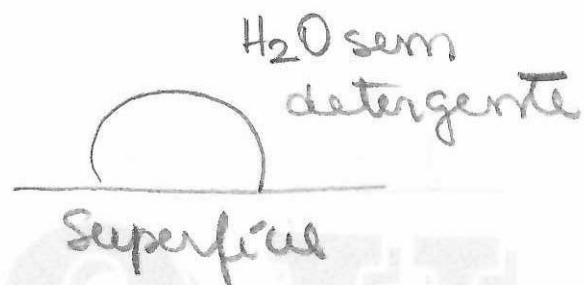 H2O sem
detergente
Superfície